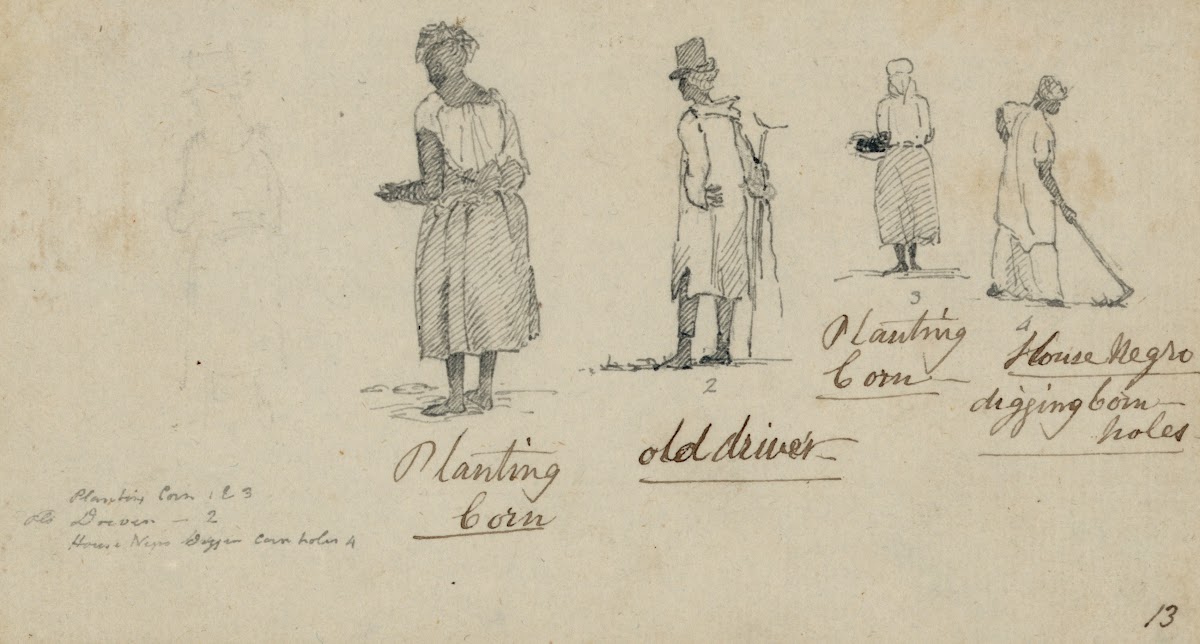 Planting
Corn
2
old driver
3
Planting
Corn
4
House Negro
digging Corn
holes
Planting Corn 1 & 3
Driver — 2
House Negro Digging Corn holes 4
13